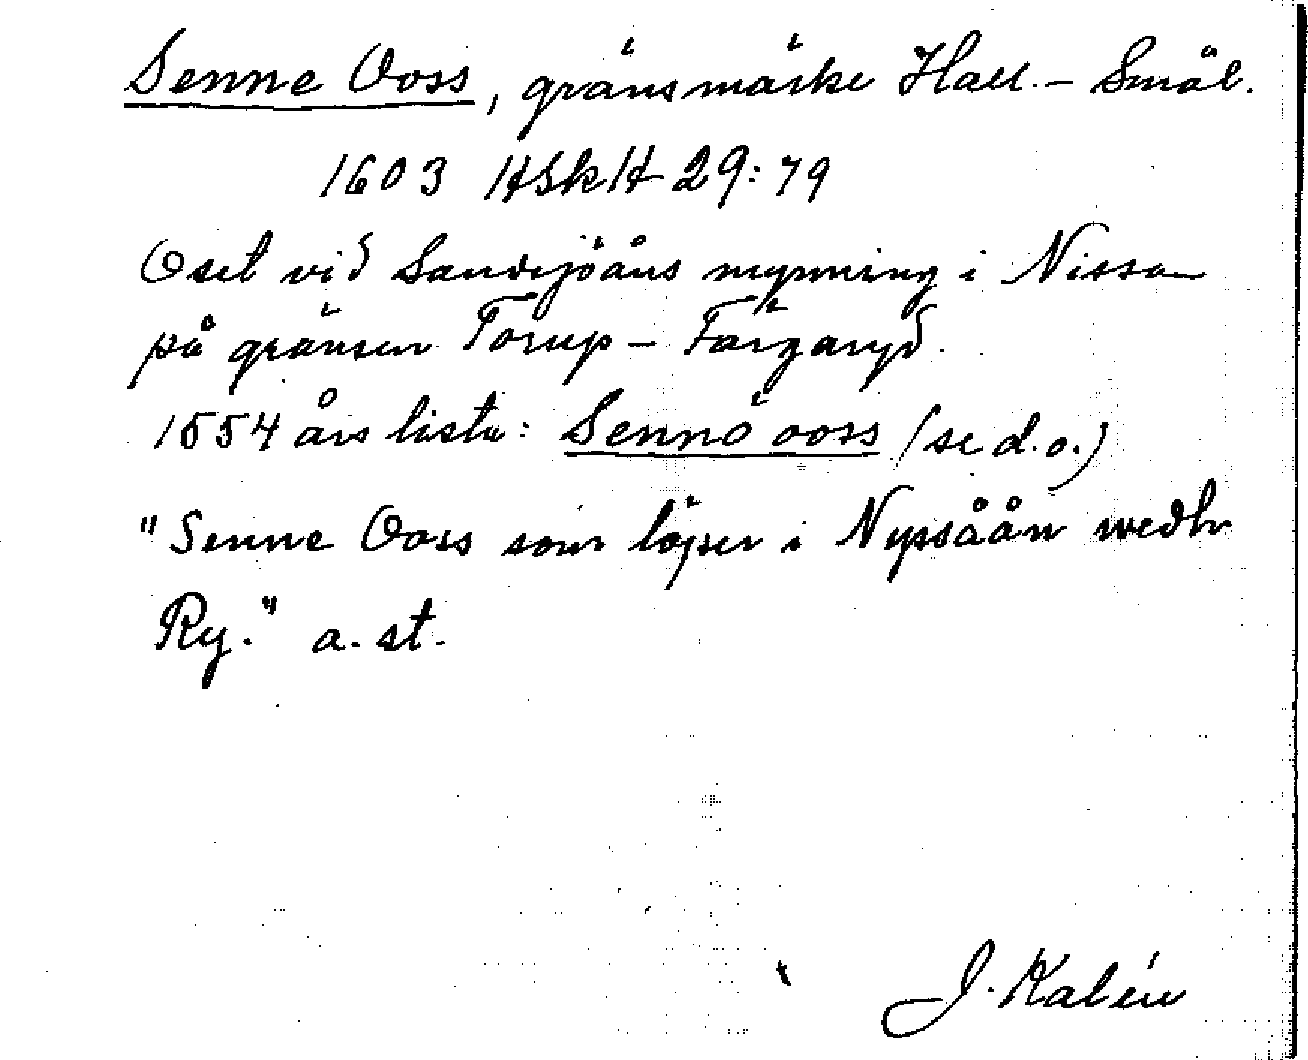 Senne Ooss, gränsmärke Hall. - Smål.
1603 HSkH 29:79
Oset vid Sandsjöåns mynning i Nissan
på gränsen Torup - Färgaryd.
1554 års lista: Sennö ooss (se d.o.)
"Senne Ooss som löper i Nypsåån wedh
Ry." a. st.
J. Kalén